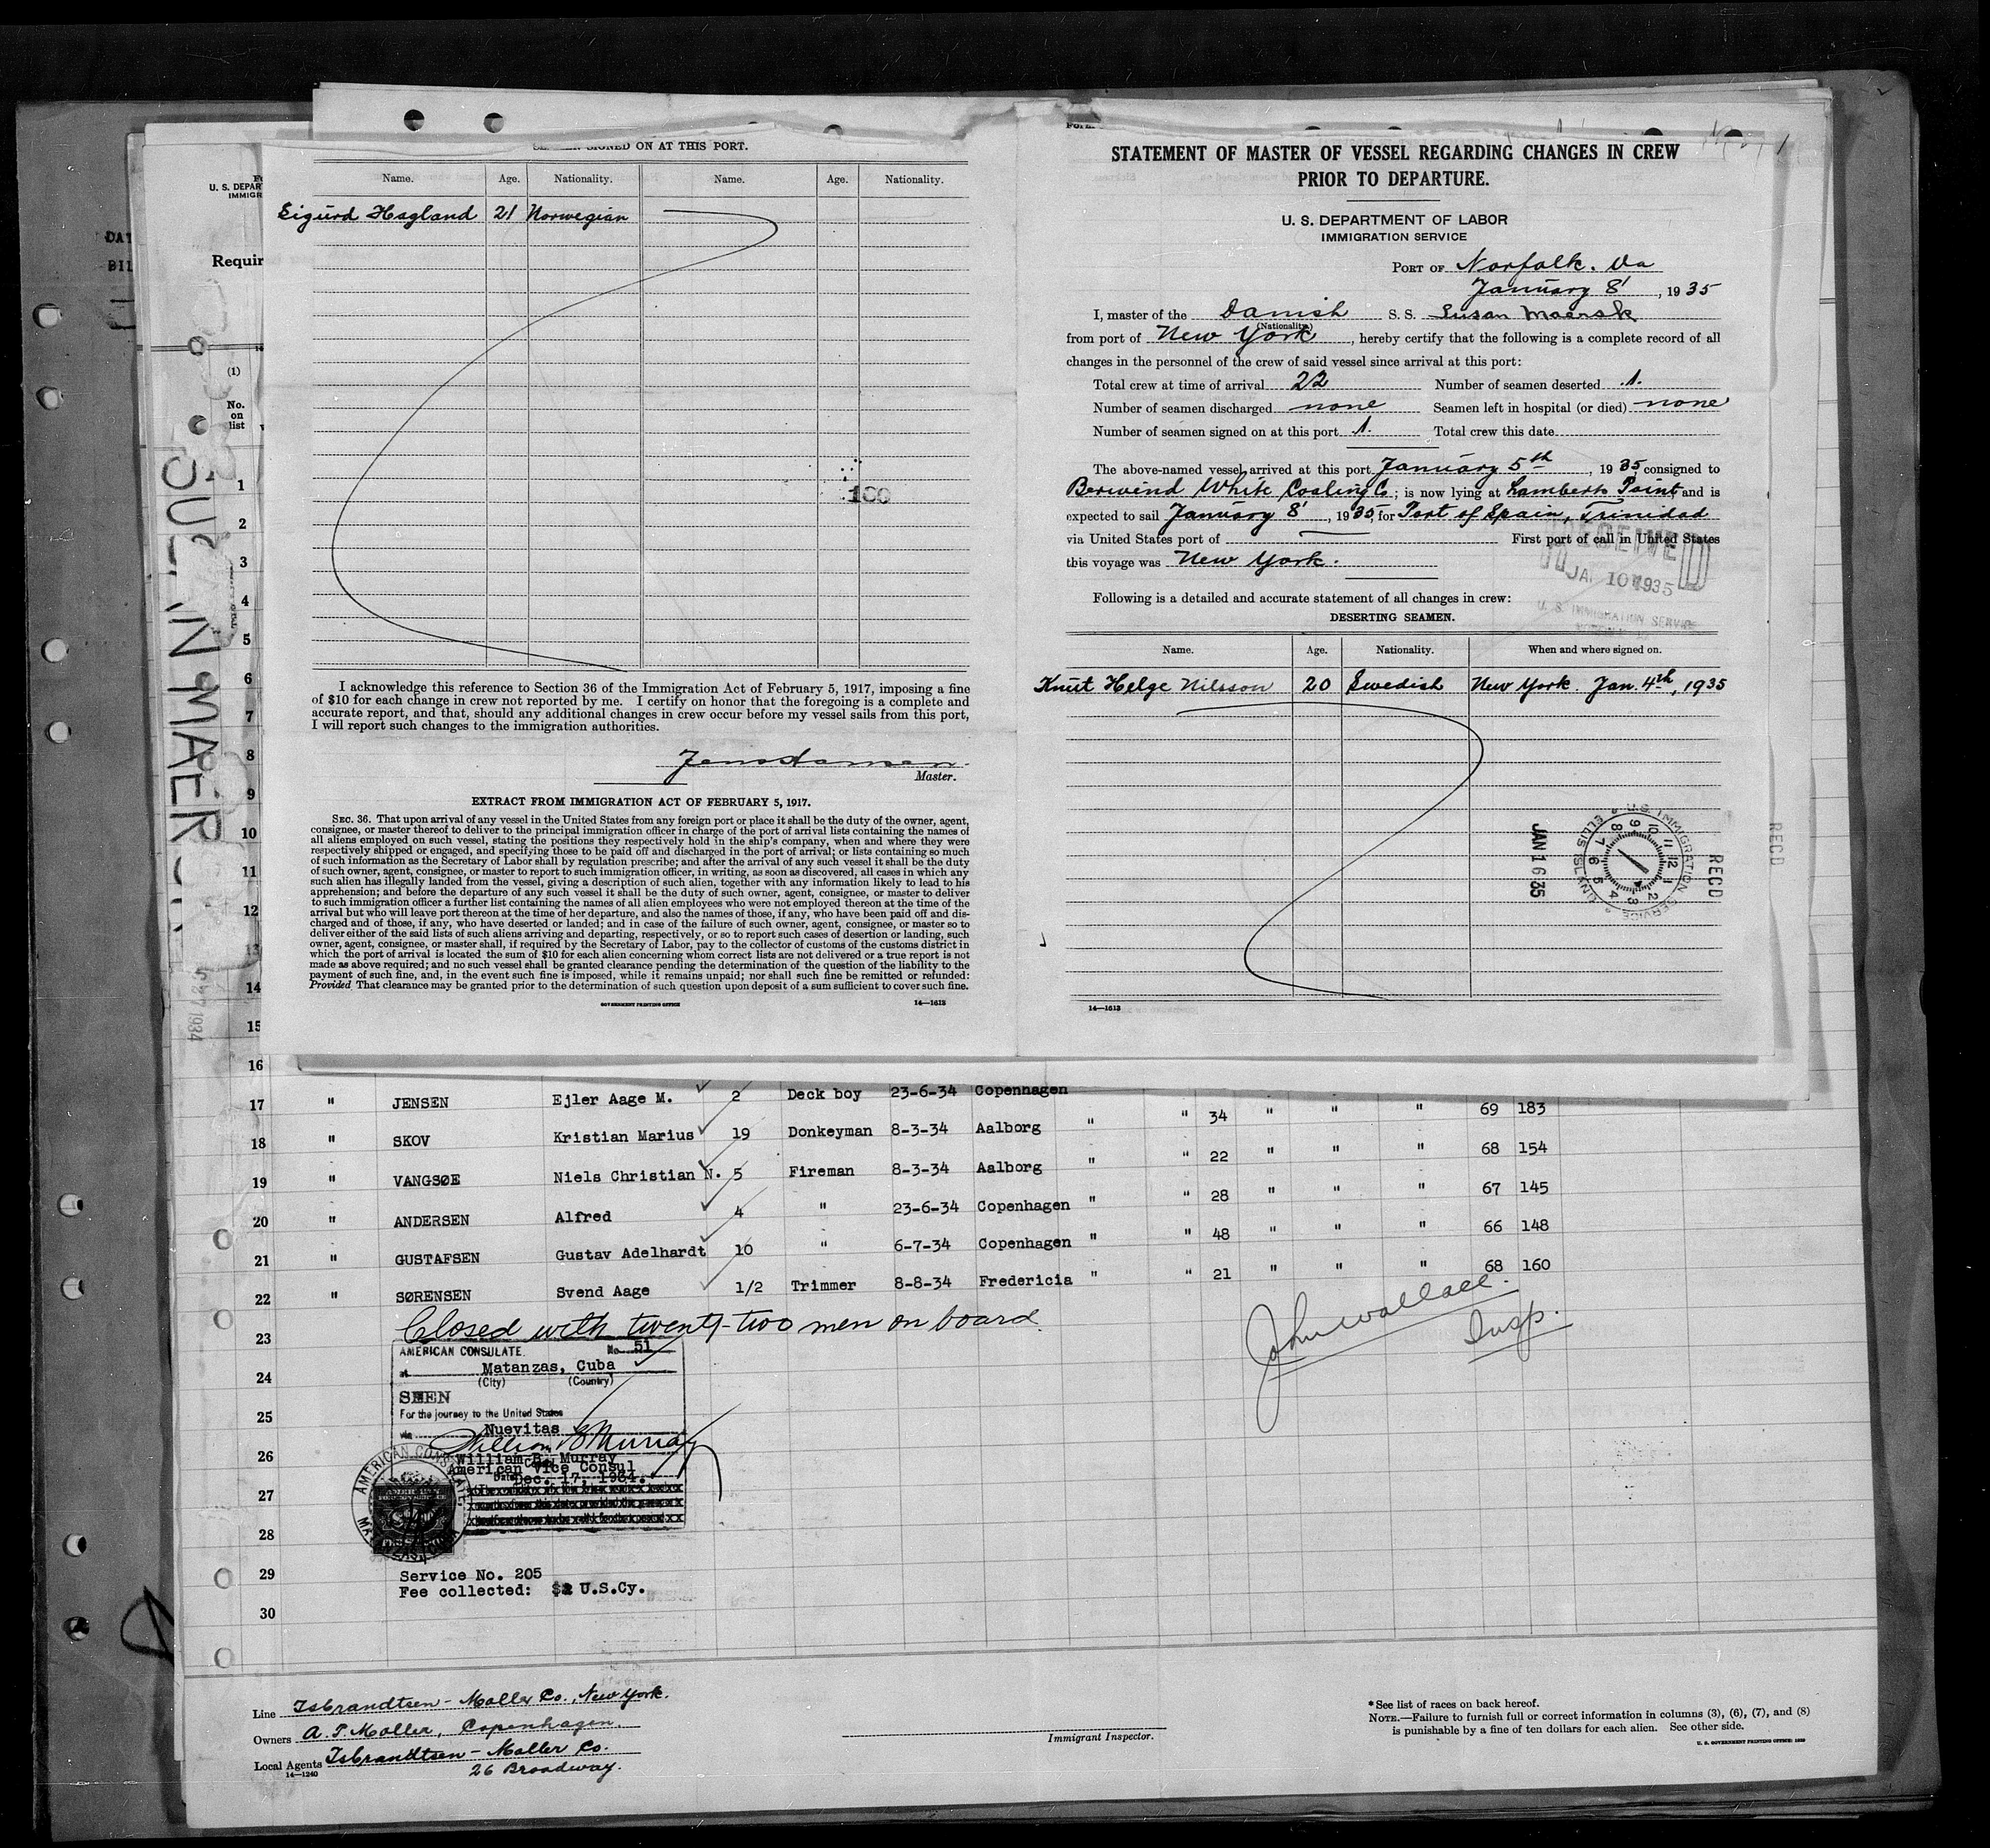 SIGNED ON AT THIS PORT.
Name. Age. Nationality. Name. Age. Nationality.
Sigurd Hagland 21 Norwegian
100
I acknowledge this reference to Section 36 of the Immigration Act of February 5, 1917, imposing a fine
of $10 for each change in crew not reported by me. I certify on honor that the foregoing is a complete and
accurate report, and that, should any additional changes in crew occur before my vessel sails from this port,
I will report such changes to the immigration authorities.
Master.
EXTRACT FROM IMMIGRATION ACT OF FEBRUARY 5, 1917.
SEC. 36. That upon arrival of any vessel in the United States from any foreign port or place it shall be the duty of the owner, agent,
consignee, or master thereof to deliver to the principal immigration officer in charge of the port of arrival lists containing the names of
all aliens employed on such vessel, stating the positions they respectively hold in the ship's company, when and where they were
respectively shipped or engaged, and specifying those to be paid off and discharged in the port of arrival; or lists containing so much
of such information as the Secretary of Labor shall by regulation prescribe; and after the arrival of any such vessel it shall be the duty
of such owner, agent, consignee, or master to report to such immigration officer, in writing, as soon as discovered, all cases in which any
such alien has illegally landed from the vessel, giving a description of such alien, together with any information likely to lead to his
apprehension; and before the departure of any such vessel it shall be the duty of such owner, agent, consignee, or master to deliver
to such immigration officer a further list containing the names of all alien employees who were not employed thereon at the time of the
arrival but who will leave port thereon at the time of her departure, and also the names of those, if any, who have been paid off and dis-
charged and of those, if any, who have deserted or landed; and in case of the failure of such owner, agent, consignee, or master so to
deliver either of the said lists of such aliens arriving and departing, respectively, or so to report such cases of desertion or landing, such
owner, agent, consignee, or master shall, if required by the Secretary of Labor, pay to the collector of customs of the customs district in
which the port of arrival is located the sum of $10 for each alien concerning whom correct lists are not delivered or a true report is not
made as above required; and no such vessel shall be granted clearance pending the determination of the question of the liability to the
payment of such fine, and, in the event such fine is imposed, while it remains unpaid; nor shall such fine be remitted or refunded:
Provided That clearance may be granted prior to the determination of such question upon deposit of a sum sufficient to cover such fine.
GOVERNMENT PRINTING OFFICE 14—1613
STATEMENT OF MASTER OF VESSEL REGARDING CHANGES IN CREW
PRIOR TO DEPARTURE.
U. S. DEPARTMENT OF LABOR
IMMIGRATION SERVICE
PORT OF Norfolk. Va
January 8', 1935
I, master of the Danish S. S. Susan Maersk
(Nationality)
from port of New York, hereby certify that the following is a complete record of all
changes in the personnel of the crew of said vessel since arrival at this port:
Total crew at time of arrival 22 Number of seamen deserted 1.
Number of seamen discharged none Seamen left in hospital (or died) none
Number of seamen signed on at this port 1. Total crew this date
The above-named vessel arrived at this port January 5th, 1935, consigned to
Berwind White Coaling Co; is now lying at Lamberts Point, and is
expected to sail January 8', 1935, for Port of Spain, Trinidad
via United States port of First port of call in United States
this voyage was New York.
RECEIVED
JAN 10 1935
U. S. IMMIGRATION SERVICE
Following is a detailed and accurate statement of all changes in crew:
DESERTING SEAMEN.
Name. Age. Nationality. When and where signed on.
Knut Helge Nilsson 20 Swedish New York. Jan. 4th, 1935
JAN 16 35
U.S. IMMIGRATION SERVICE ELLIS ISLAND
1 2 3 4 5 6 7 8 9 10 11 12
RECD
RECD
14—1613
U. S. DEPAR
IMMIGR
DAT
BIL
Requir
(1)
No.
on
list
1
2
3
4
5
6
7
8
9
10
11
12
13
14
15
16
17 " JENSEN Ejler Aage M. 2 Deck boy 23-6-34 Copenhagen
18 " SKOV Kristian Marius 19 Donkeyman 8-3-34 Aalborg " " 34 " " " 69 183
19 " VANGSØE Niels Christian N. 5 Fireman 8-3-34 Aalborg " " 22 " " " 68 154
20 " ANDERSEN Alfred 4 " 23-6-34 Copenhagen " " 28 " " " 67 145
21 " GUSTAFSEN Gustav Adelhardt 10 " 6-7-34 Copenhagen " " 48 " " " 66 148
22 " SØRENSEN Svend Aage 1/2 Trimmer 8-8-34 Fredericia " " 21 " " " 68 160
23 Closed with twenty-two men on board.
John Wallace.
Insp.
AMERICAN CONSULATE. No. 51
at Matanzas, Cuba
24
(City) (Country)
SEEN
For the journey to the United States
25
via Nuevitas
William B Murray
William B. Murray
26
American Vice Consul
Date Dec. 17, 1934.
27
28
AMERICAN CONSULATE
29 Service No. 205
Fee collected: $2 U.S.Cy.
30
Line Isbrandtsen - Moller Co., New York.
Owners A. P. Moller, Copenhagen.
Local Agents Isbrandtsen - Moller Co.
14—1240
26 Broadway.
Immigrant Inspector.
*See list of races on back hereof.
NOTE.—Failure to furnish full or correct information in columns (3), (6), (7), and (8)
is punishable by a fine of ten dollars for each alien. See other side.